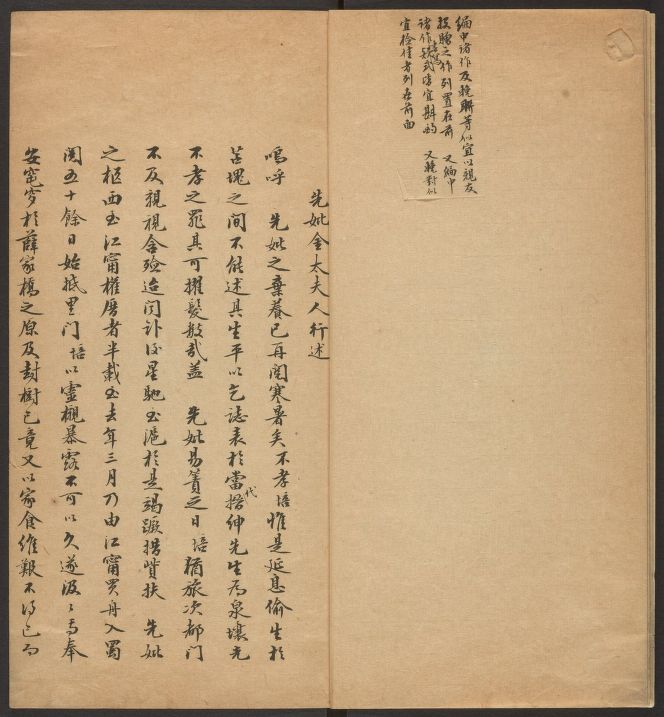 編中諸作及輓聯等似宜以親友
投贈之作列置在前　又編中
諸作款式清宜斟酌　又輓對似
宜檢佳者列在前面
先妣金太夫人行述
嗚呼　先妣之棄養已再閱寒暑矣不孝培惟是延息偷生於
苫塊之間不能述其生平以乞誌表於當代搢紳先生為泉壤光
不孝之罪其可擢髮數哉蓋　先妣易簀之日培猶旅次都門
不及親視含殮迨聞訃後星馳至滬於是竭蹶措貲扶　先妣
之柩西至江甯權厝者半載至去年三月乃由江甯買舟入蜀
閱五十餘日始抵里門培以靈櫬暴露不可以久遂汲汲焉奉
安窀穸於薛家橋之原及封樹已竟又以家食維艱不得已而